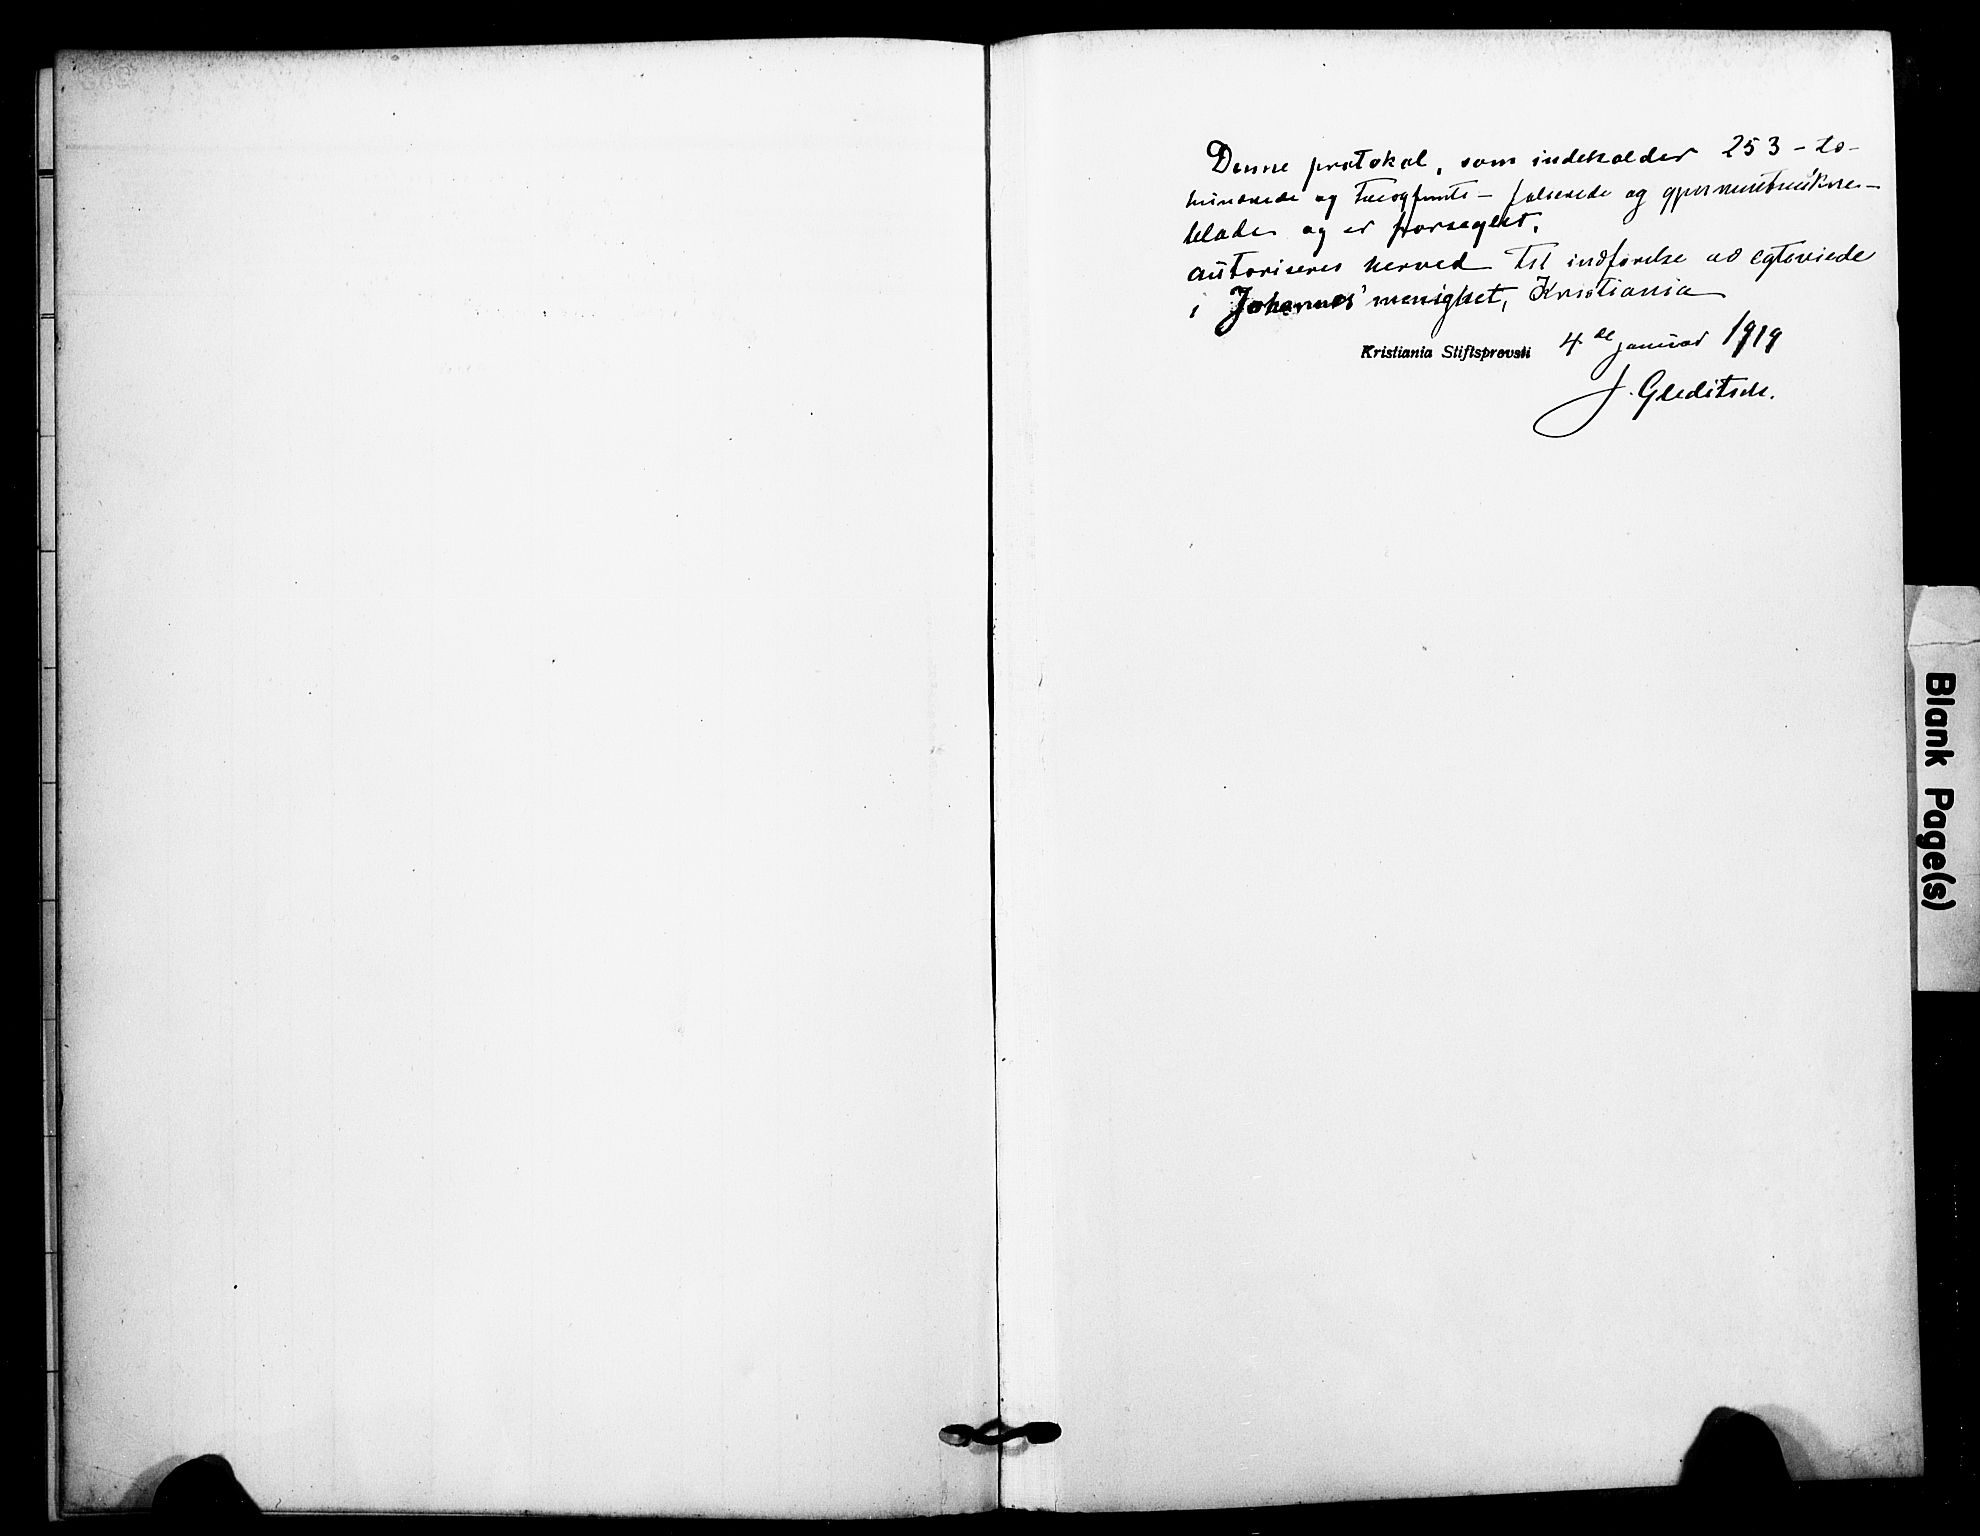 Denne protokol, som indeholder 253 - to-
hundrede og treogfemti - folierede og gjennemtrukne -
blade og er forseglet,
autoriseres herved til indførelse av egteviede
i Johannes' menighet, Kristiania
Kristiania Stiftsprovsti 4de januar 1919
J. Gleditsch.
Blank Page(s)